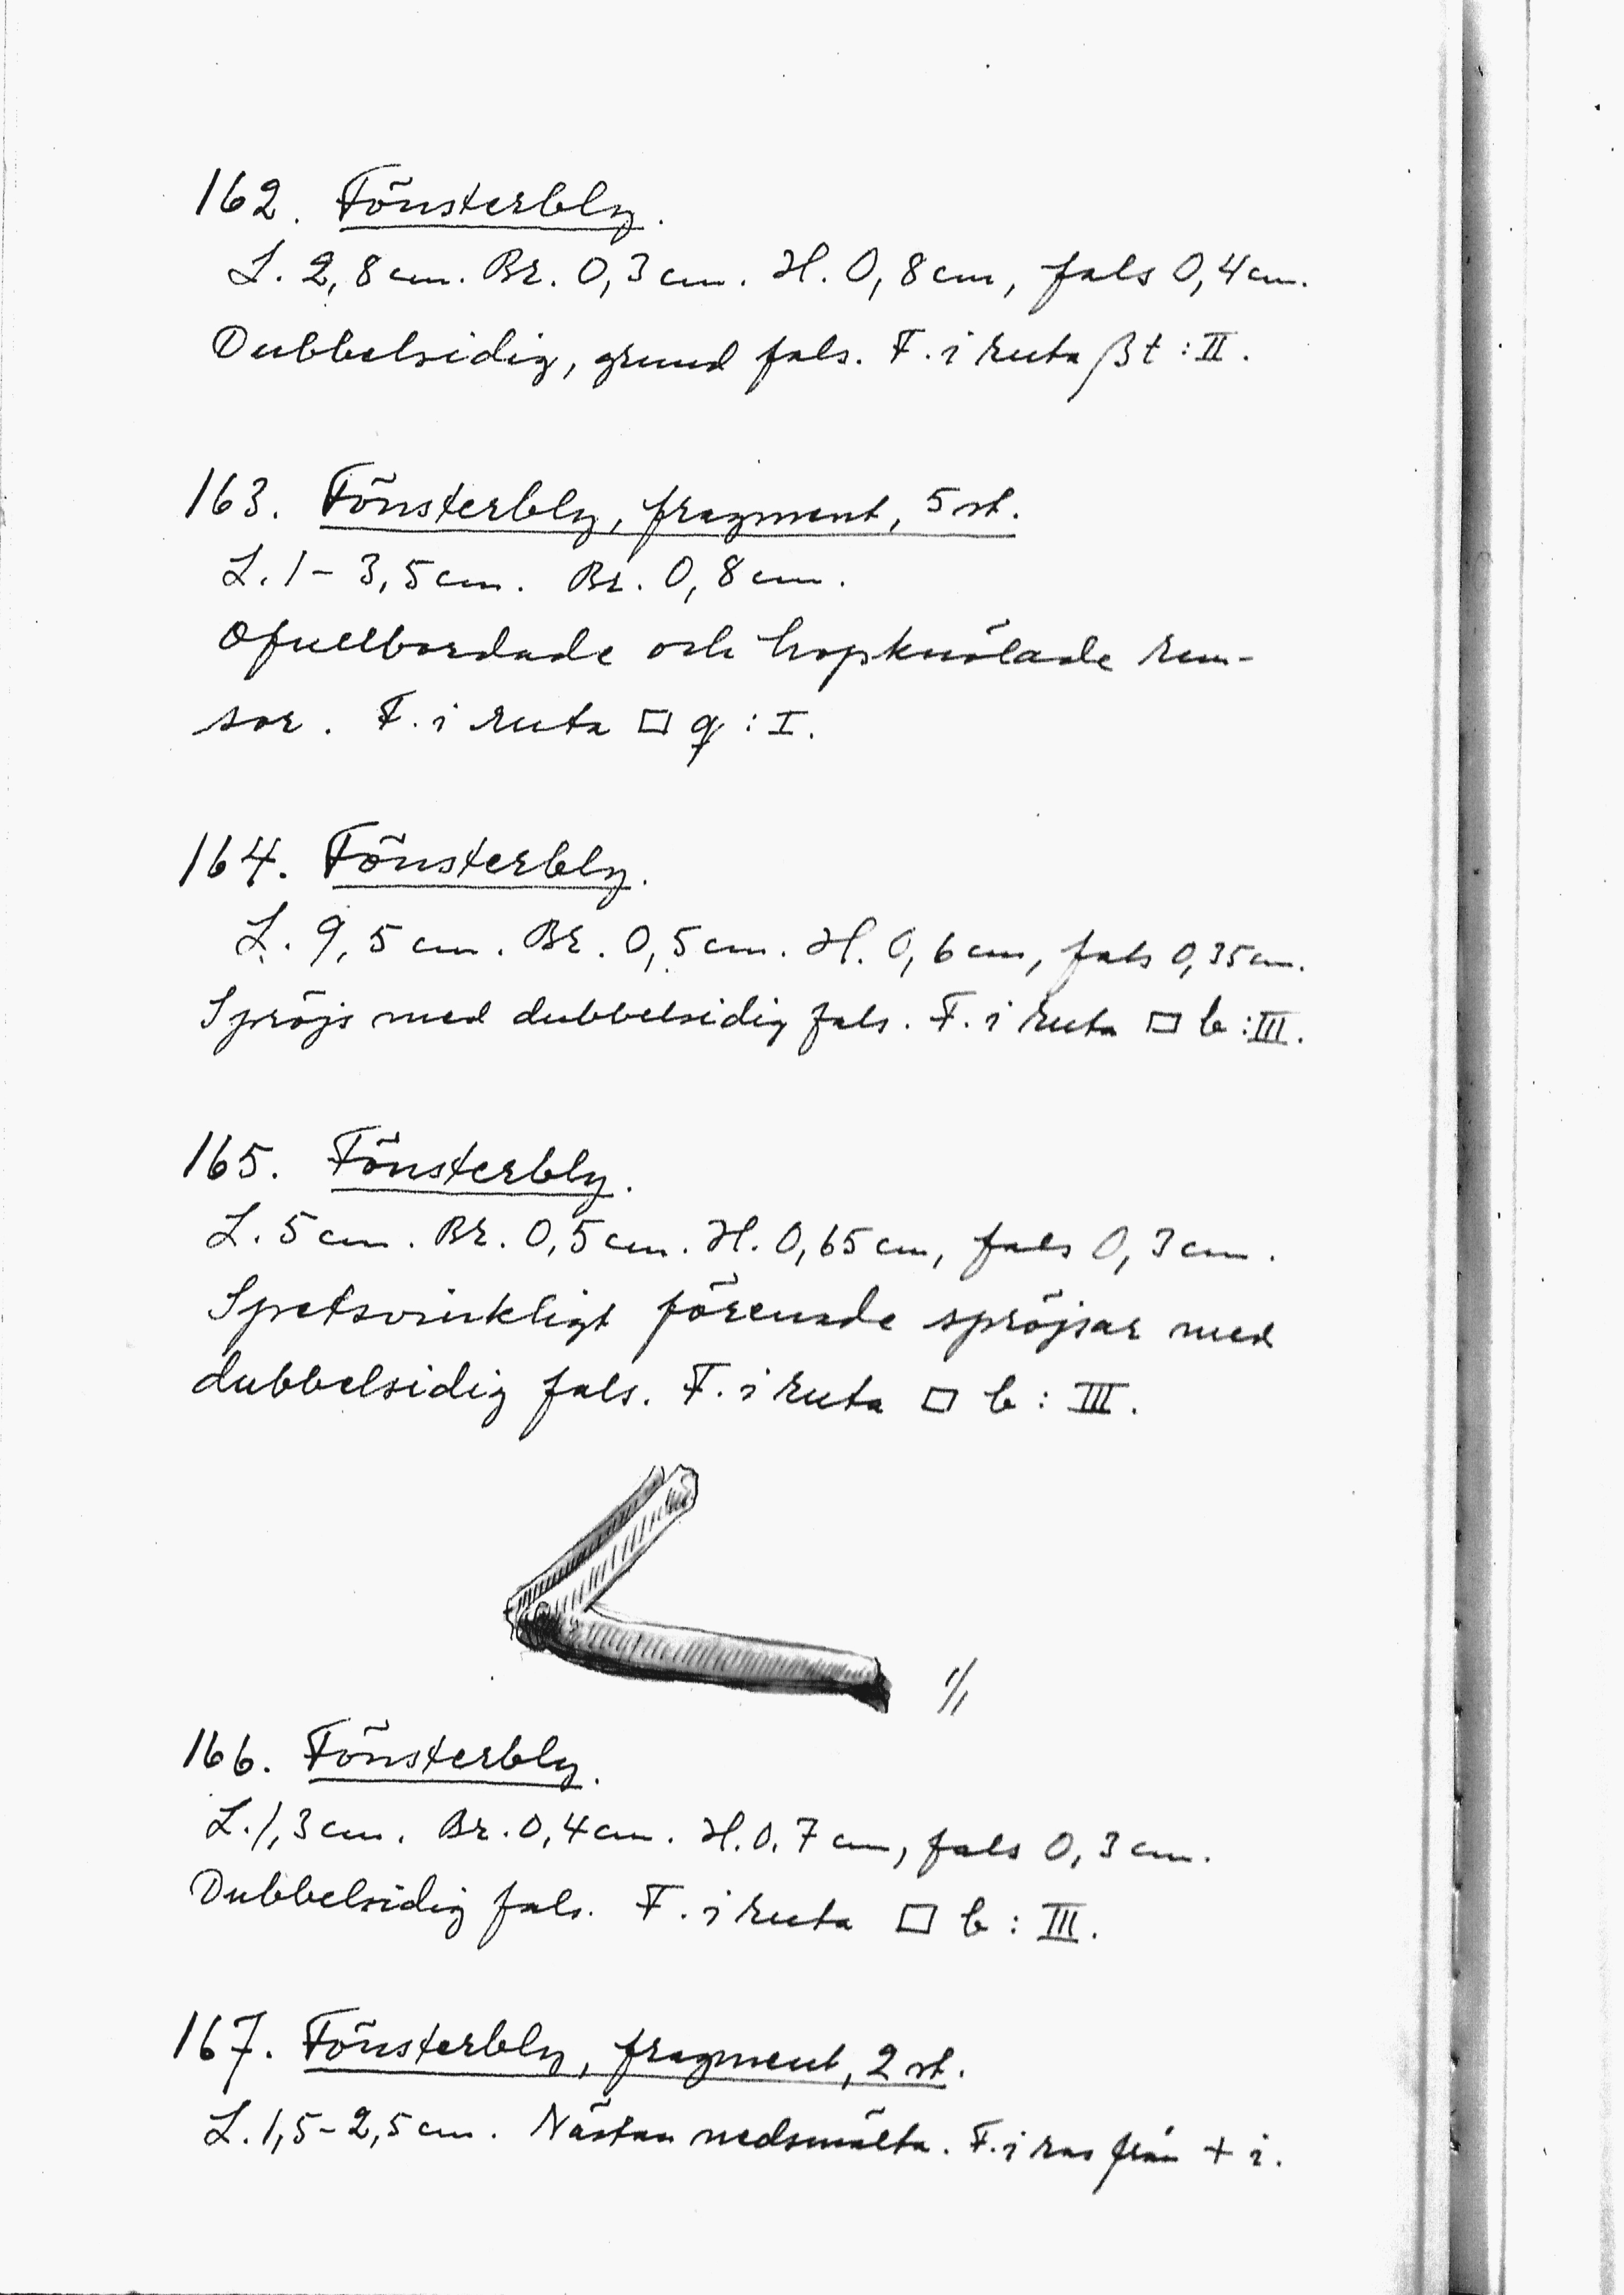 162. Fönsterbly.
L. 2,8 cm. Br. 0,3 cm. H. 0,8 cm, fals 0,4 cm.
Dubbelsidig, grund fals. F. i ruta βt : II.
163. Fönsterbly, fragment, 5 st.
L. 1 - 3,5 cm. Br. 0,8 cm.
Ofullbordade och hopknölade rem-
sor. F. i ruta □ q : I.
164. Fönsterbly.
L. 9,5 cm. Br. 0,5 cm. H. 0,6 cm, fals 0,35 cm.
Spröjs med dubbelsidig fals. F. i ruta □ b : III.
165. Fönsterbly.
L. 5 cm. Br. 0,5 cm. H. 0,65 cm, fals 0,3 cm.
Spetsvinkligt förenade spröjsar med
dubbelsidig fals. F. i ruta □ b : III.
1/1
166. Fönsterbly.
L. 1,3 cm. Br. 0,4 cm. H. 0.7 cm, fals 0,3 cm.
Dubbelsidig fals. F. i ruta □ b : III.
167. Fönsterbly, fragment, 2 st.
L. 1,5 - 2,5 cm. Nästan nedsmälta. F. i ras från + i.